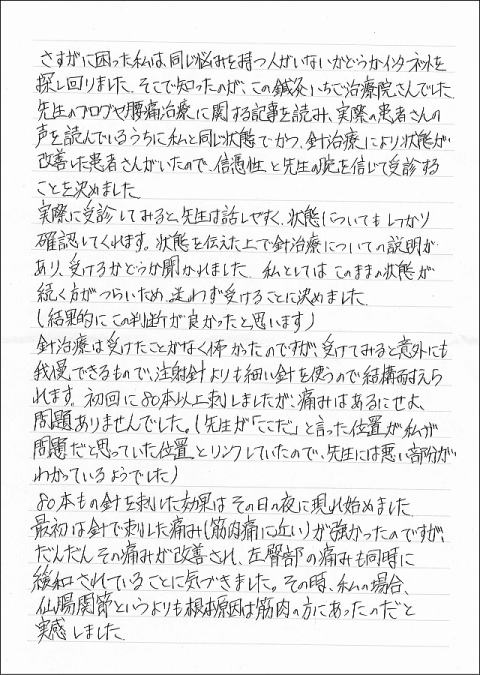 さすがに困った私は、同じ悩みを持つ人がいないかどうかインタネットを
探し回りました。そこで知ったのが、この鍼灸いちご治療院さんでした。
先生のブログや腰痛治療に関する記事を読み、実際の患者さんの
声を読んでいるうちに私と同じ状態でかつ、針治療により状態が
改善した患者さんがいたので、信憑性と先生の腕を信じて受診する
ことを決めました。
実際に受診してみると、先生は話しやすく、状態についてもしっかり
確認してくれます。状態を伝えた上で針治療についての説明が
あり、受けるかどうか聞かれました。私としてはこのままの状態が
続く方がつらいため、迷わず受けることに決めました。
(結果的にこの判断が良かったと思います)
針治療は受けたことがなく怖かったのですが、受けてみると意外にも
我慢できるもので、注射針よりも細い針を使うので結構耐えら
れます。初回に80本以上刺しましたが、痛みはあるにせよ、
問題ありませんでした。(先生が「ここだ」と言った位置が私が
問題だと思っていた位置とリンクしていたので、先生には悪い部分が
わかっているようでした)
80本もの針を刺した効果はその日の夜に現れ始めました。
最初は針で刺した痛み(筋肉痛に近い)が強かったのですが、
だんだんその痛みが改善され、左臀部の痛みも同時に
緩和されていることに気づきました。その時、私の場合、
仙腸関節というよりも根本原因は筋肉の方にあったのだと
実感しました。